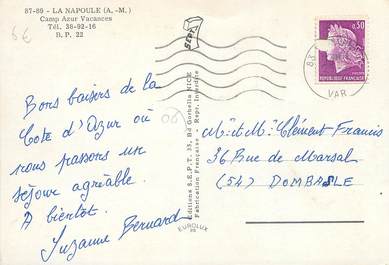 87-89 - LA NAPOULE (A.-M.)
Camp Azur Vacances
Tél. 38-92-16
B. P. 22
6€
SEPT
0,50
RÉPUBLIQUE FRANÇAISE
83
VAR
Bons baisers de la
Cote d'Azur où
nous passons un
séjour agréable.
A bientôt.
Suzanne Bernard
Editions S.E.P.T. 33, Bd Gorbella NICE
Fabrication Française - Repr. Interdite
EUROLUX
Mr et Me Clément Francis
36 Rue de Marsal
(54) DOMBASLE